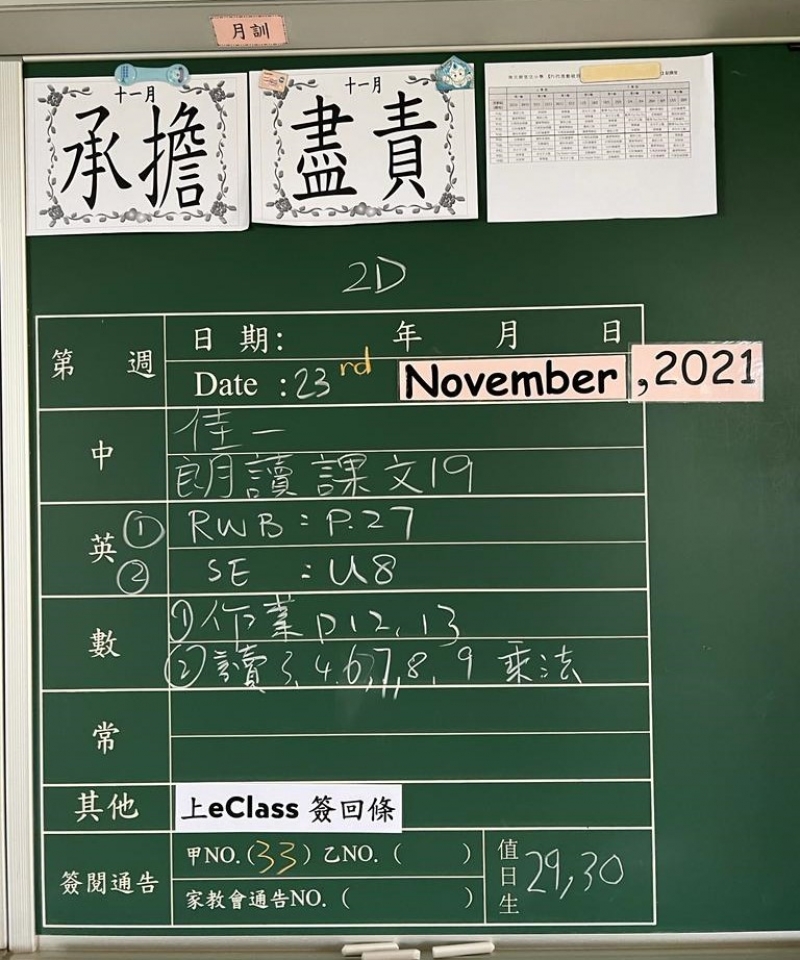 月訓
十一月
承擔
十一月
盡責
2D
第 週
日 期: 年 月 日
Date : 23rd November ,2021
中
佳一
朗讀課文19
英
① RWB : P.27
② SE : U8
數
①作業 p12, 13
②讀3, 4, 6, 7, 8, 9 乘法
常
其他
上eClass 簽回條
簽閱通告
甲NO.(33) 乙NO. ( )
家教會通告NO. ( )
值日生
29,30